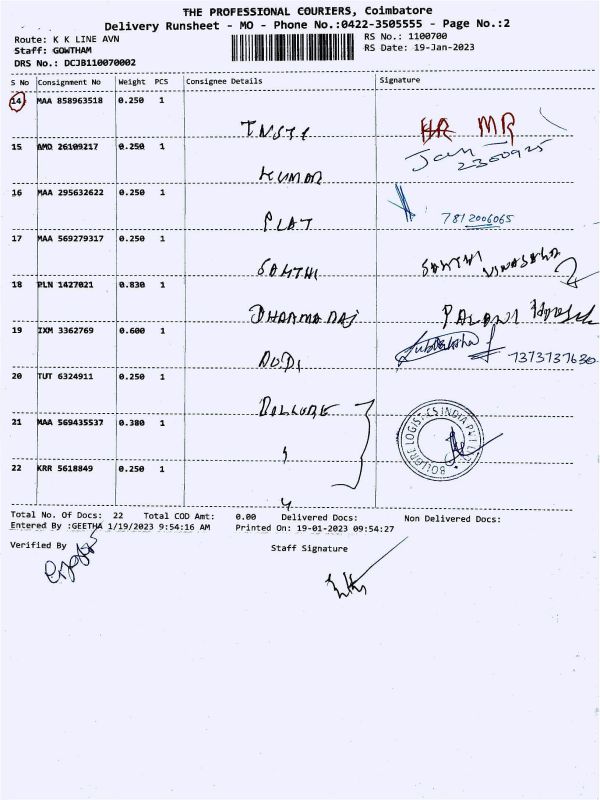 THE PROFESSIONAL COURIERS, Coimbatore
Delivery Runsheet - MO - Phone No.:0422-3505555 - Page No.:2
Route: K K LINE AVN
RS No.: 1100700
Staff: GOWTHAM
RS Date: 19-Jan-2023
DRS No.: DCJB110070002
S No Consignment No Weight PCS Consignee Details Signature
14 MAA 858963518 0.250 1
HR MR
15 AMD 26109217 0.250 1
2360925
KUMAR
16 MAA 295632622 0.250 1
7812006065
PLAT
17 MAA 569279317 0.250 1
SANTHI SANTHI
18 PLN 1427021 0.830 1
DHARMARAJ PALANI
19 IXM 3362769 0.600 1
7373737630
AUDI
20 TUT 6324911 0.250 1
BOLLORE
21 MAA 569435537 0.380 1
BOLLORE LOGISTICS INDIA PVT LTD
22 KRR 5618849 0.250 1
Total No. Of Docs: 22 Total COD Amt: 0.00 Delivered Docs: Non Delivered Docs:
Entered By :GEETHA 1/19/2023 9:54:16 AM Printed On: 19-01-2023 09:54:27
Verified By Staff Signature